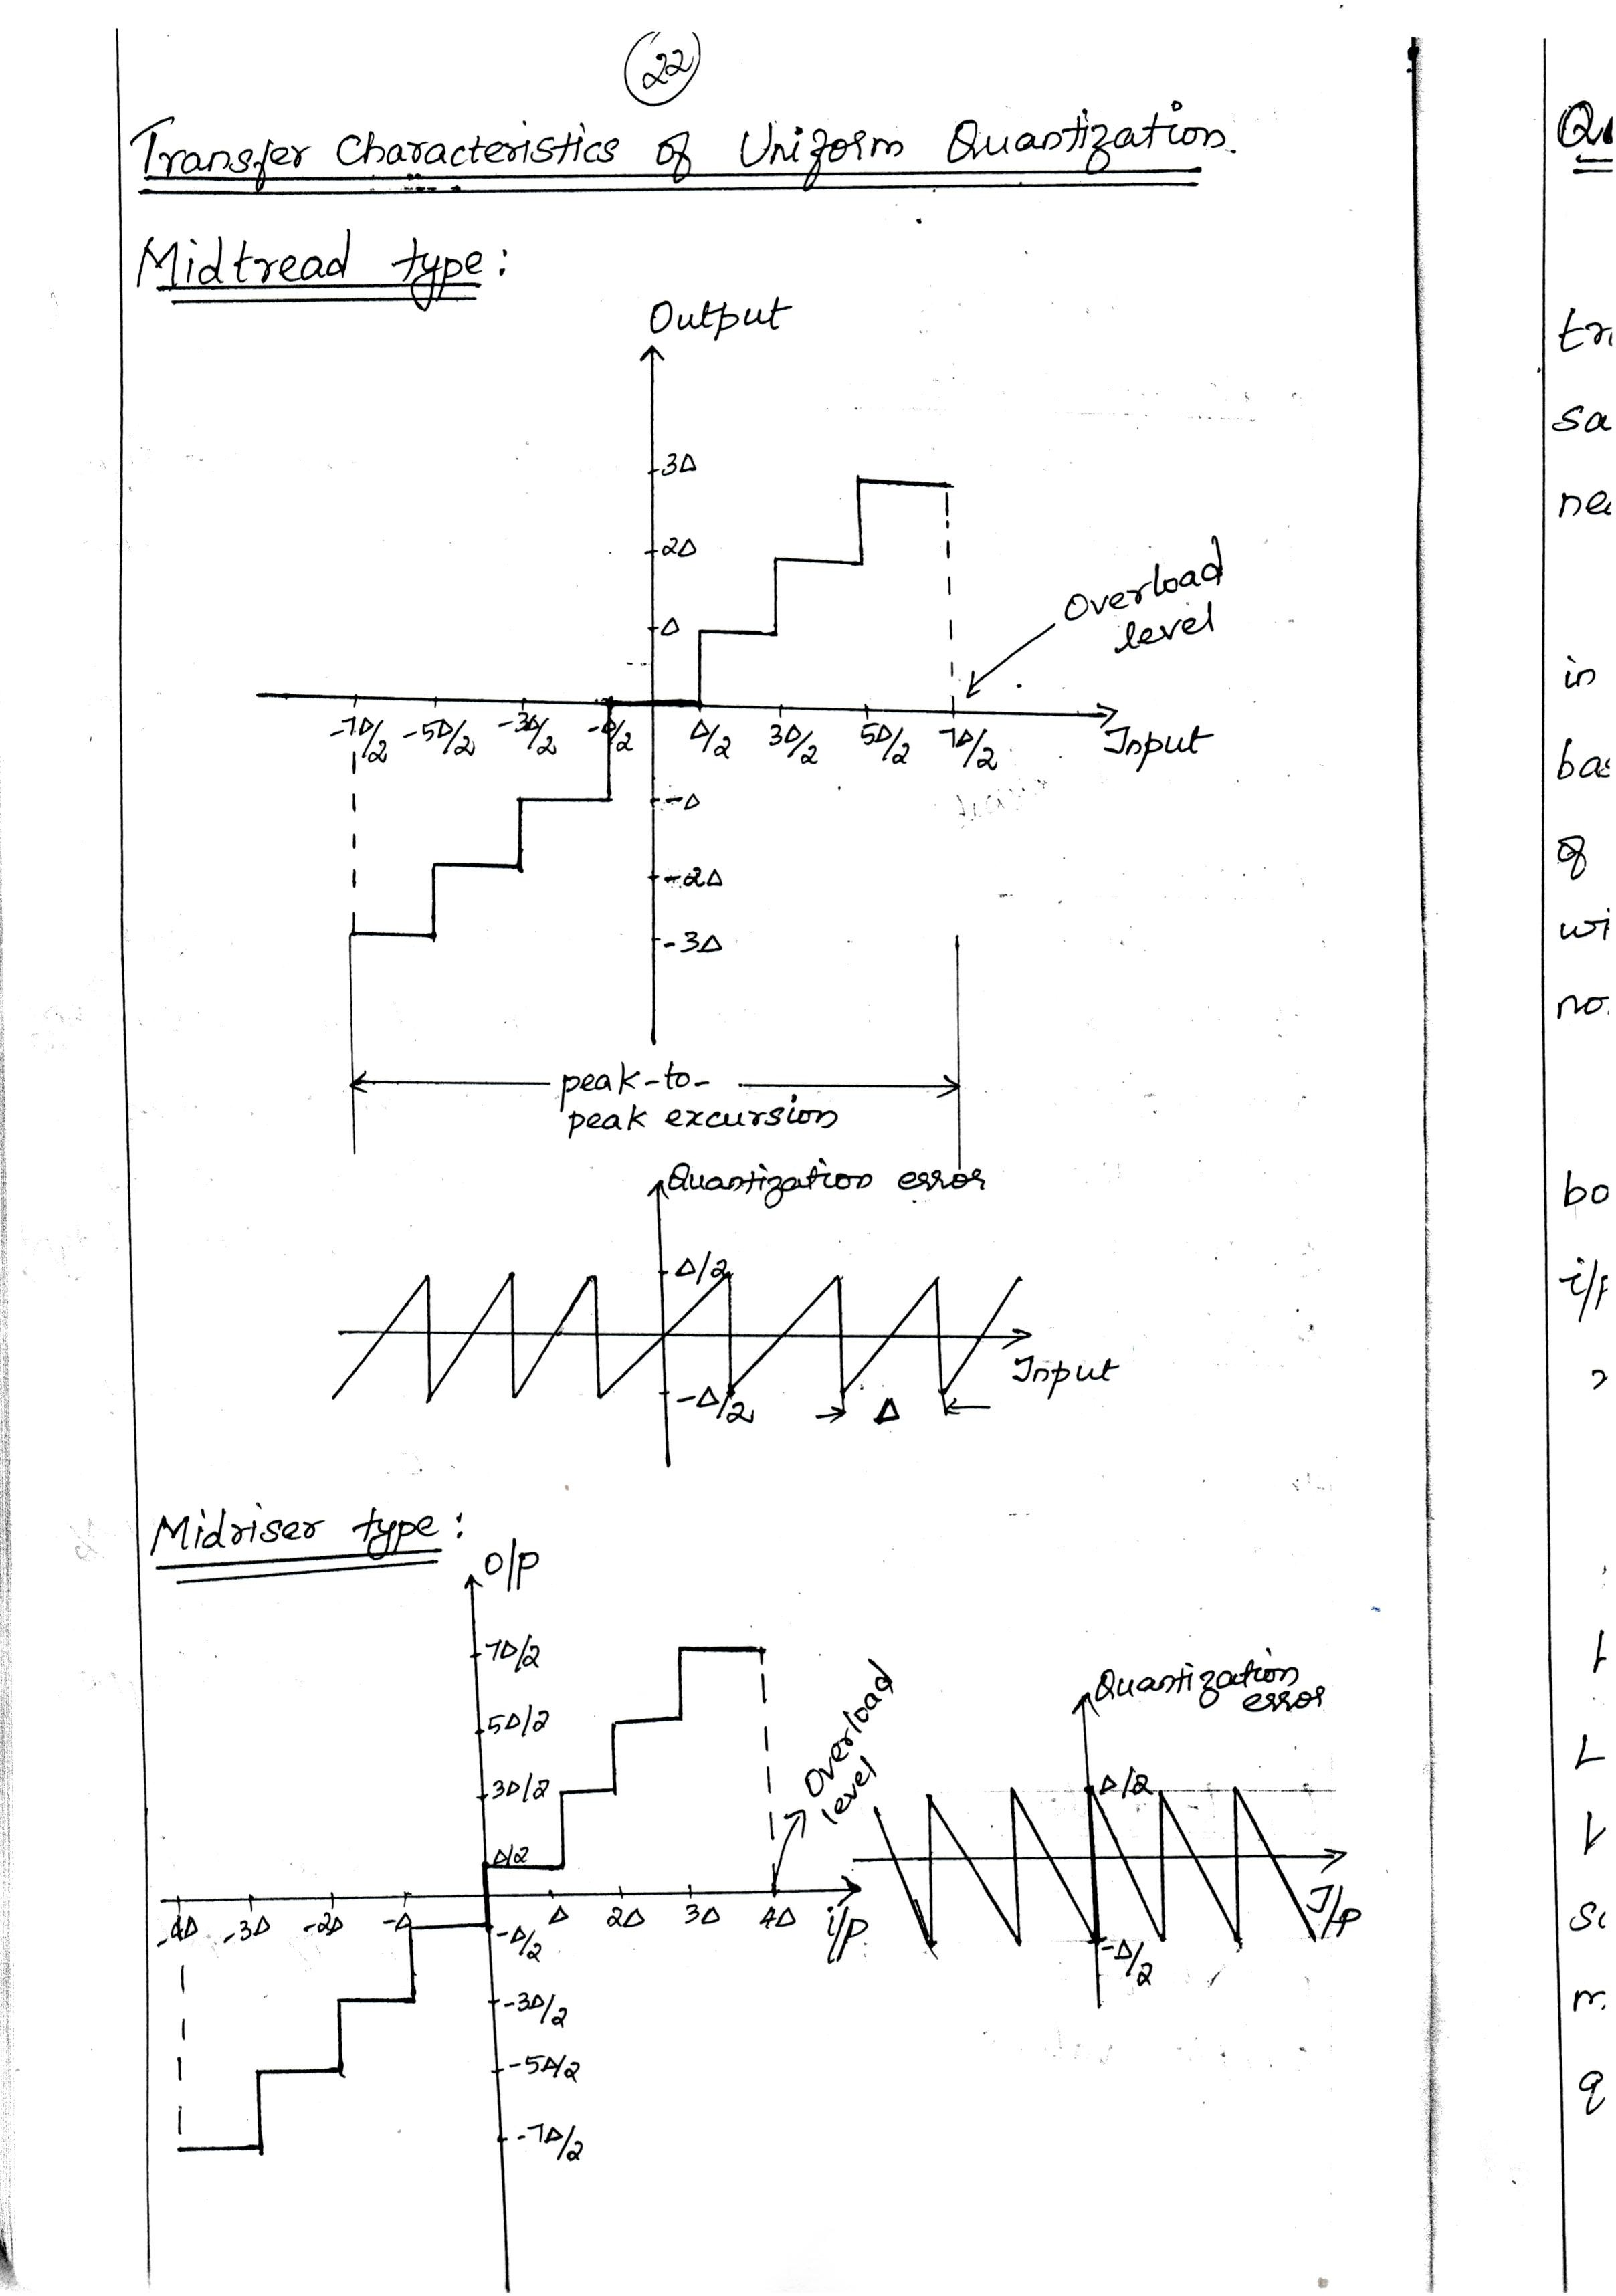 22
Transfer Characteristics of Uniform Quantization.
Midtread type:
Output
3Δ
2Δ
Δ
Overload
level
-7Δ/2 -5Δ/2 -3Δ/2 -Δ/2 Δ/2 3Δ/2 5Δ/2 7Δ/2 Input
-Δ
-2Δ
-3Δ
peak-to-
peak excursion
Quantization error
Δ/2
Input
-Δ/2 Δ
Midriser type:
O/P
7Δ/2
5Δ/2
3Δ/2
Δ/2
Overload
level
-4Δ -3Δ -2Δ -Δ Δ 2Δ 3Δ 4Δ i/p.
-Δ/2
-3Δ/2
-5Δ/2
-7Δ/2
Quantization
error
Δ/2
I/p
-Δ/2
tr
sa
in
of
wi
no.
bo